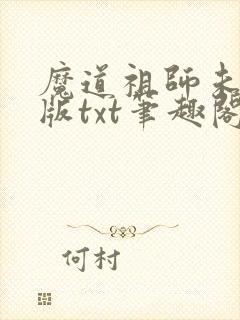 魔道祖師未
版txt筆趣閣
何村